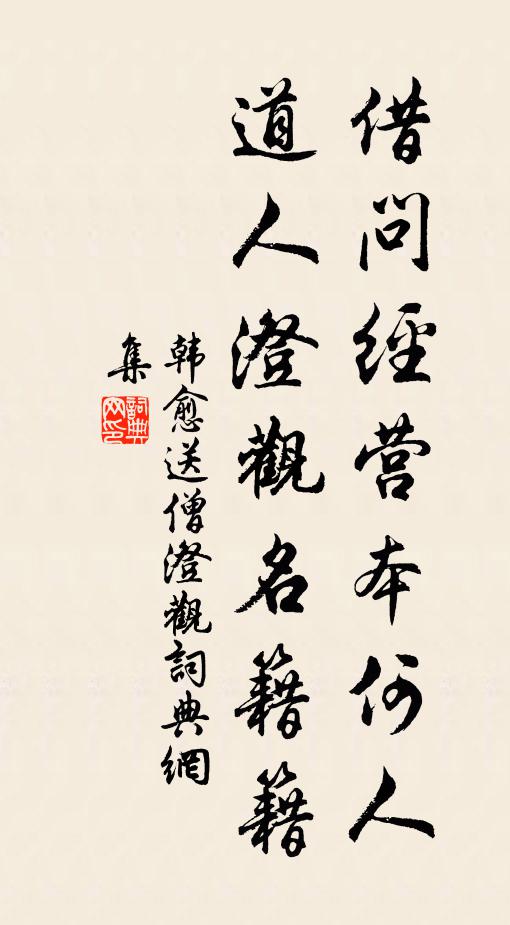 借問經營本何人
道人澄觀名籍籍
韩愈送僧澄觀詞典網
集
詞典网印